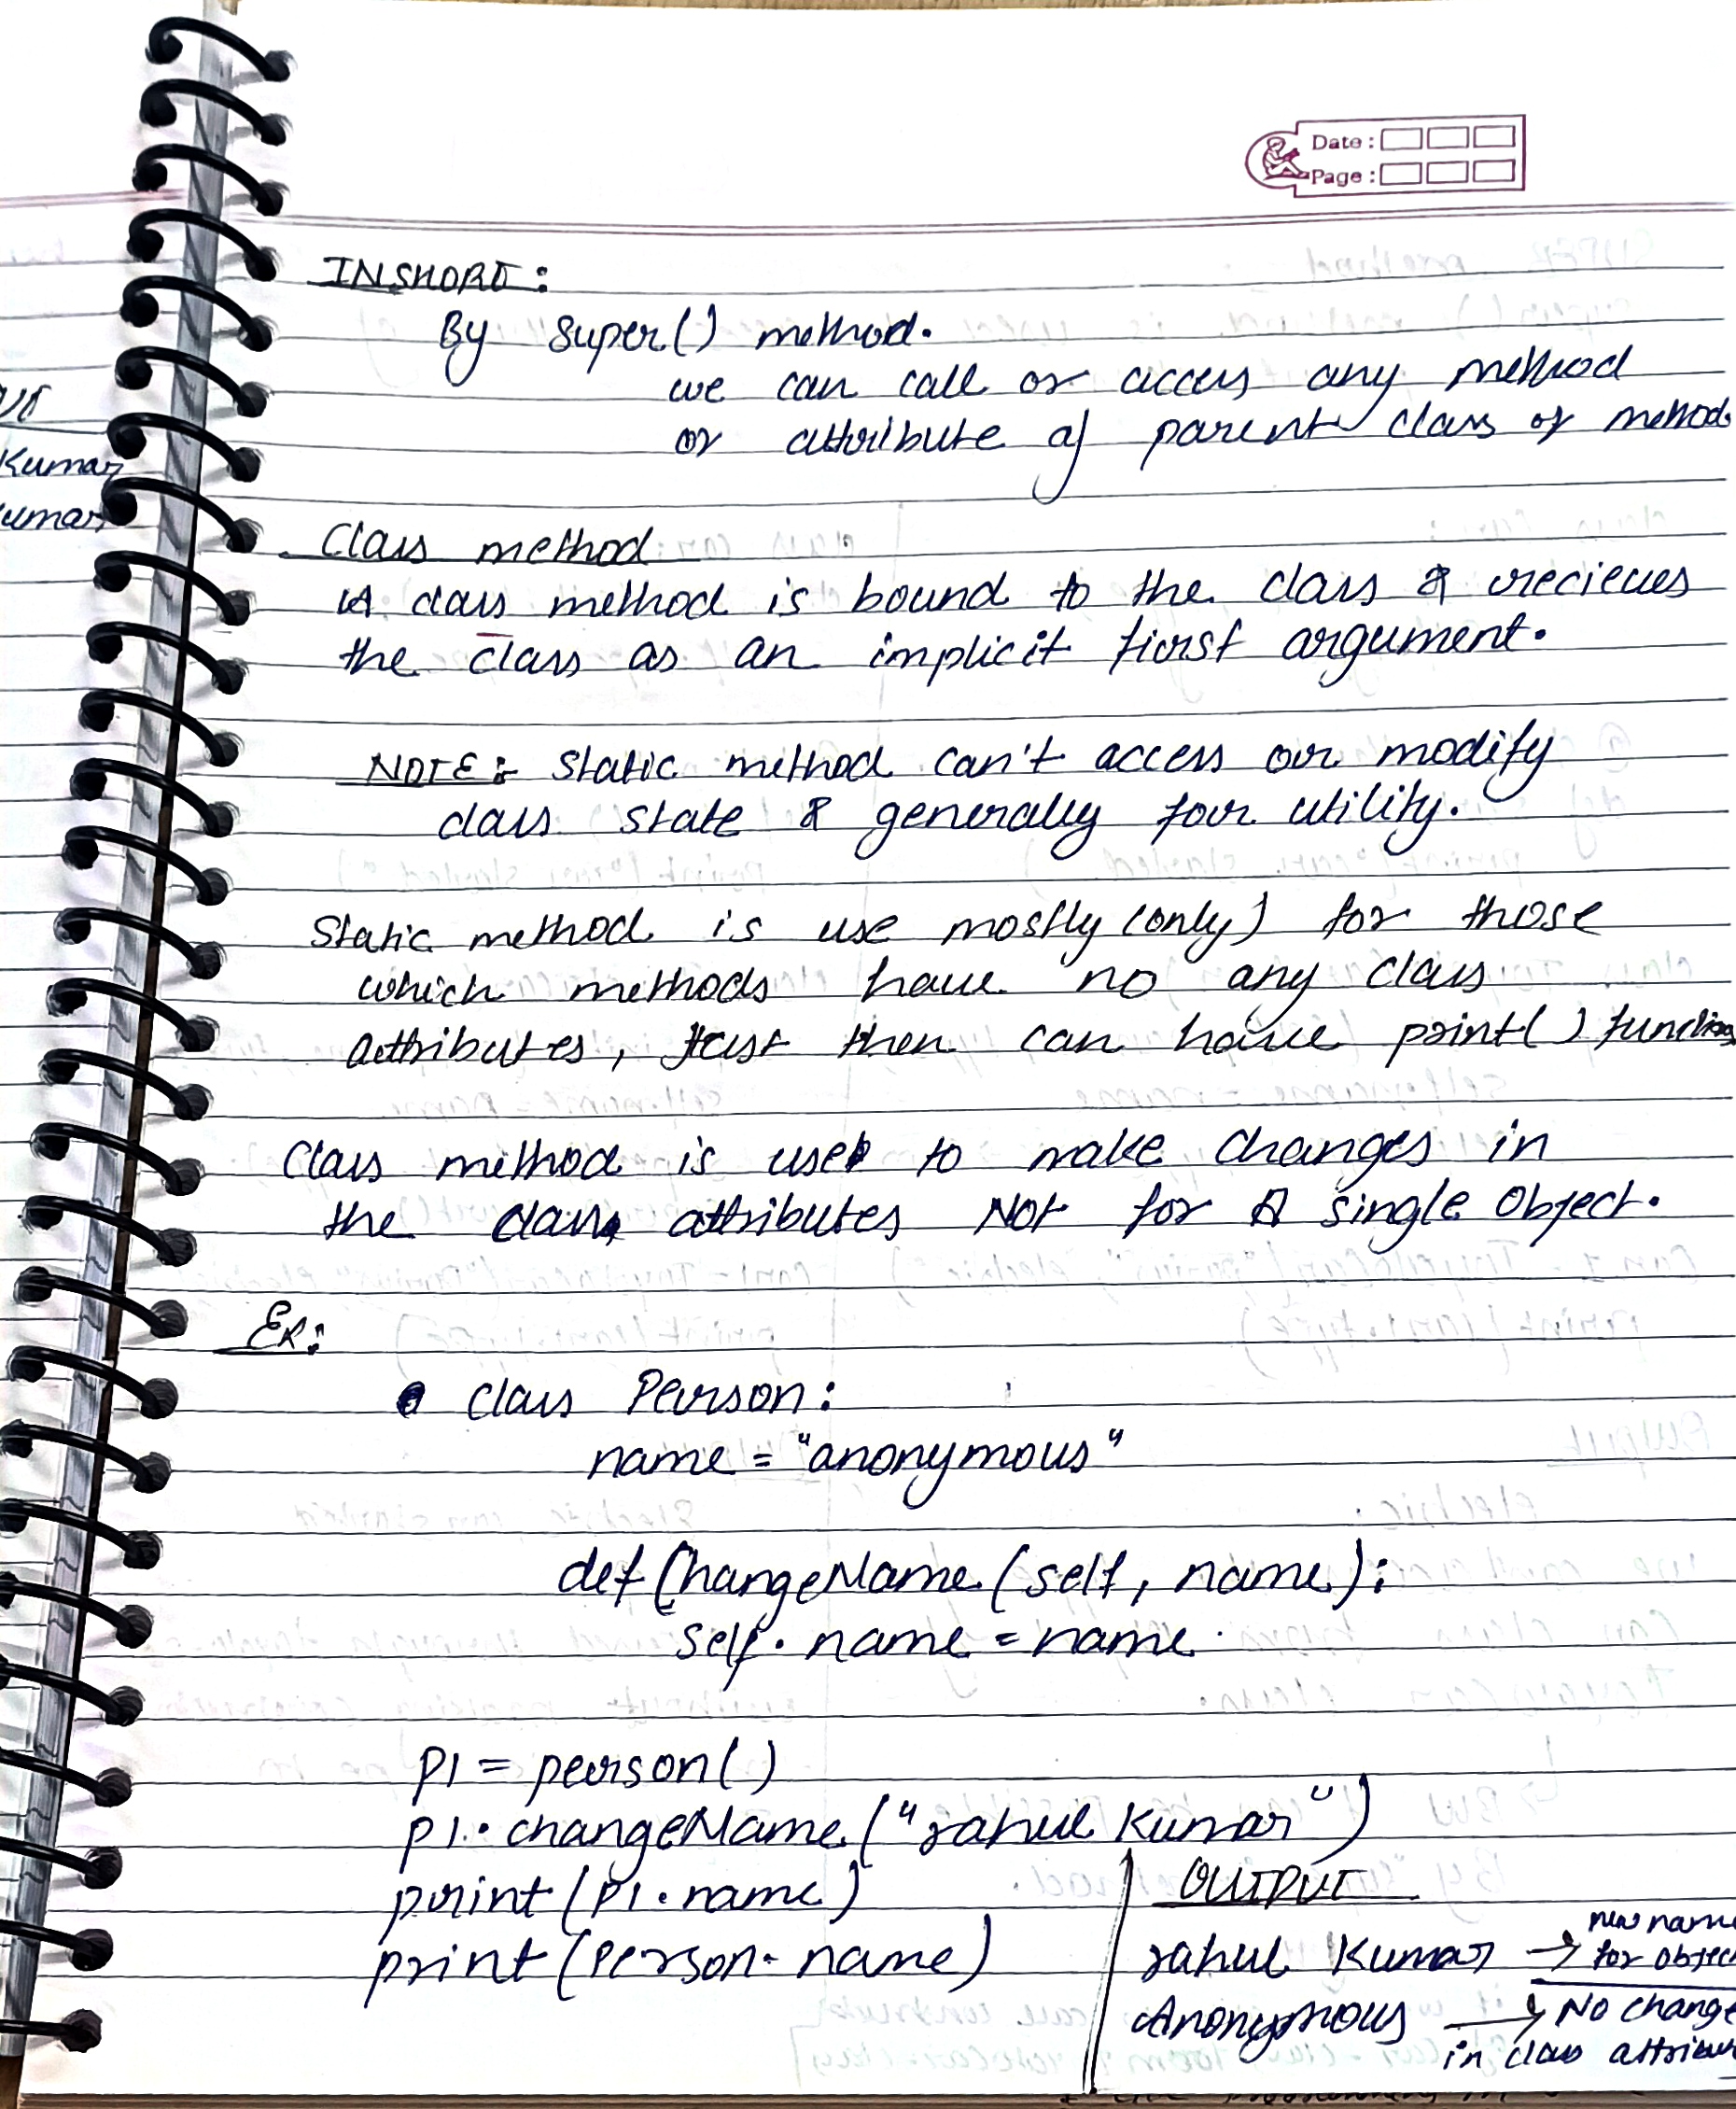 Date :
Page :
INSHORT:
By Super() method.
we can call or access any method
or attribute of parent class of method.
Class method
A class method is bound to the class & recieves
the class as an implicit first argument.
NOTE: Static method can't access or modify
class state & generally for utility.
Static method is use mostly (only) for those
which methods have no any class
attributes, then can have print() function
Class method is used to make changes in
the class attributes Not for A single Object.
Ex:
class Person:
name = "anonymous"
def ChangeName (self, name):
self.name = name
p1 = person()
p1.changeName("rahul Kumar")
print(p1.name)
print(Person.name)
OUTPUT
rahul Kumar → new name
for object
Anonymous → No change
in class attribute
Kumar
Kumar